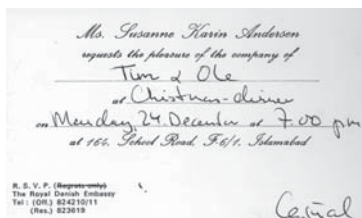 Ms. Susanne Karin Andersen
requests the pleasure of the company of
Tim & Ole
at Christmas-dinner
on Monday, 24. December at 7.00 pm
at 164, School Road, F-6/1, Islamabad
R. S. V. P. (Regrets only)
The Royal Danish Embassy
Tel : (Off.) 824210/11
(Res.) 823619
Casual